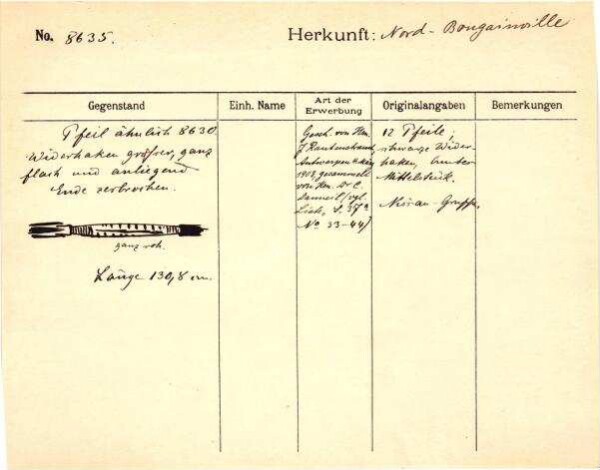 No. 8635.
Herkunft: Nord-Bougainville
Gegenstand
Einh. Name
Art der Erwerbung
Originalangaben
Bemerkungen
Pfeil ähnlich 8630
Widerhaken größer, ganz
flach und anliegend
Ende zerbrochen.
ganz roh.
Länge 130,8 cm.
Gesch. von Hn.
J Rautenstrauch,
Antwerpen
1913, gesammelt
von Hn. Dr C.
/vgl.
Liste, S.
No 33-44/
12 Pfeile,
schwarze Wider-
haken, bunter
Mittelstück.
Nissan-Gruppe.